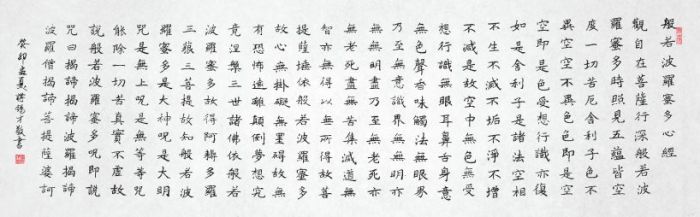 般若波羅蜜多心經
觀自在菩薩行深般若波
羅蜜多時照見五蘊皆空
度一切苦厄舍利子色不
異空空不異色色即是空
空即是色受想行識亦復
如是舍利子是諸法空相
不生不滅不垢不淨不增
不減是故空中無色無受
想行識無眼耳鼻舌身意
無色聲香味觸法無眼界
乃至無意識界無無明亦
無無明盡乃至無老死亦
無老死盡無苦集滅道無
智亦無得以無所得故菩
提薩埵依般若波羅蜜多
故心無掛礙無罣礙故無
有恐怖遠離顛倒夢想究
竟涅槃三世諸佛依般若
波羅蜜多故得阿耨多羅
三藐三菩提故知般若波
羅蜜多是大神咒是大明
咒是無上咒是無等等咒
能除一切苦真實不虛故
說般若波羅蜜多咒即說
咒曰揭諦揭諦波羅揭諦
波羅僧揭諦菩提薩婆訶
癸卯孟夏蔣錫才敬書